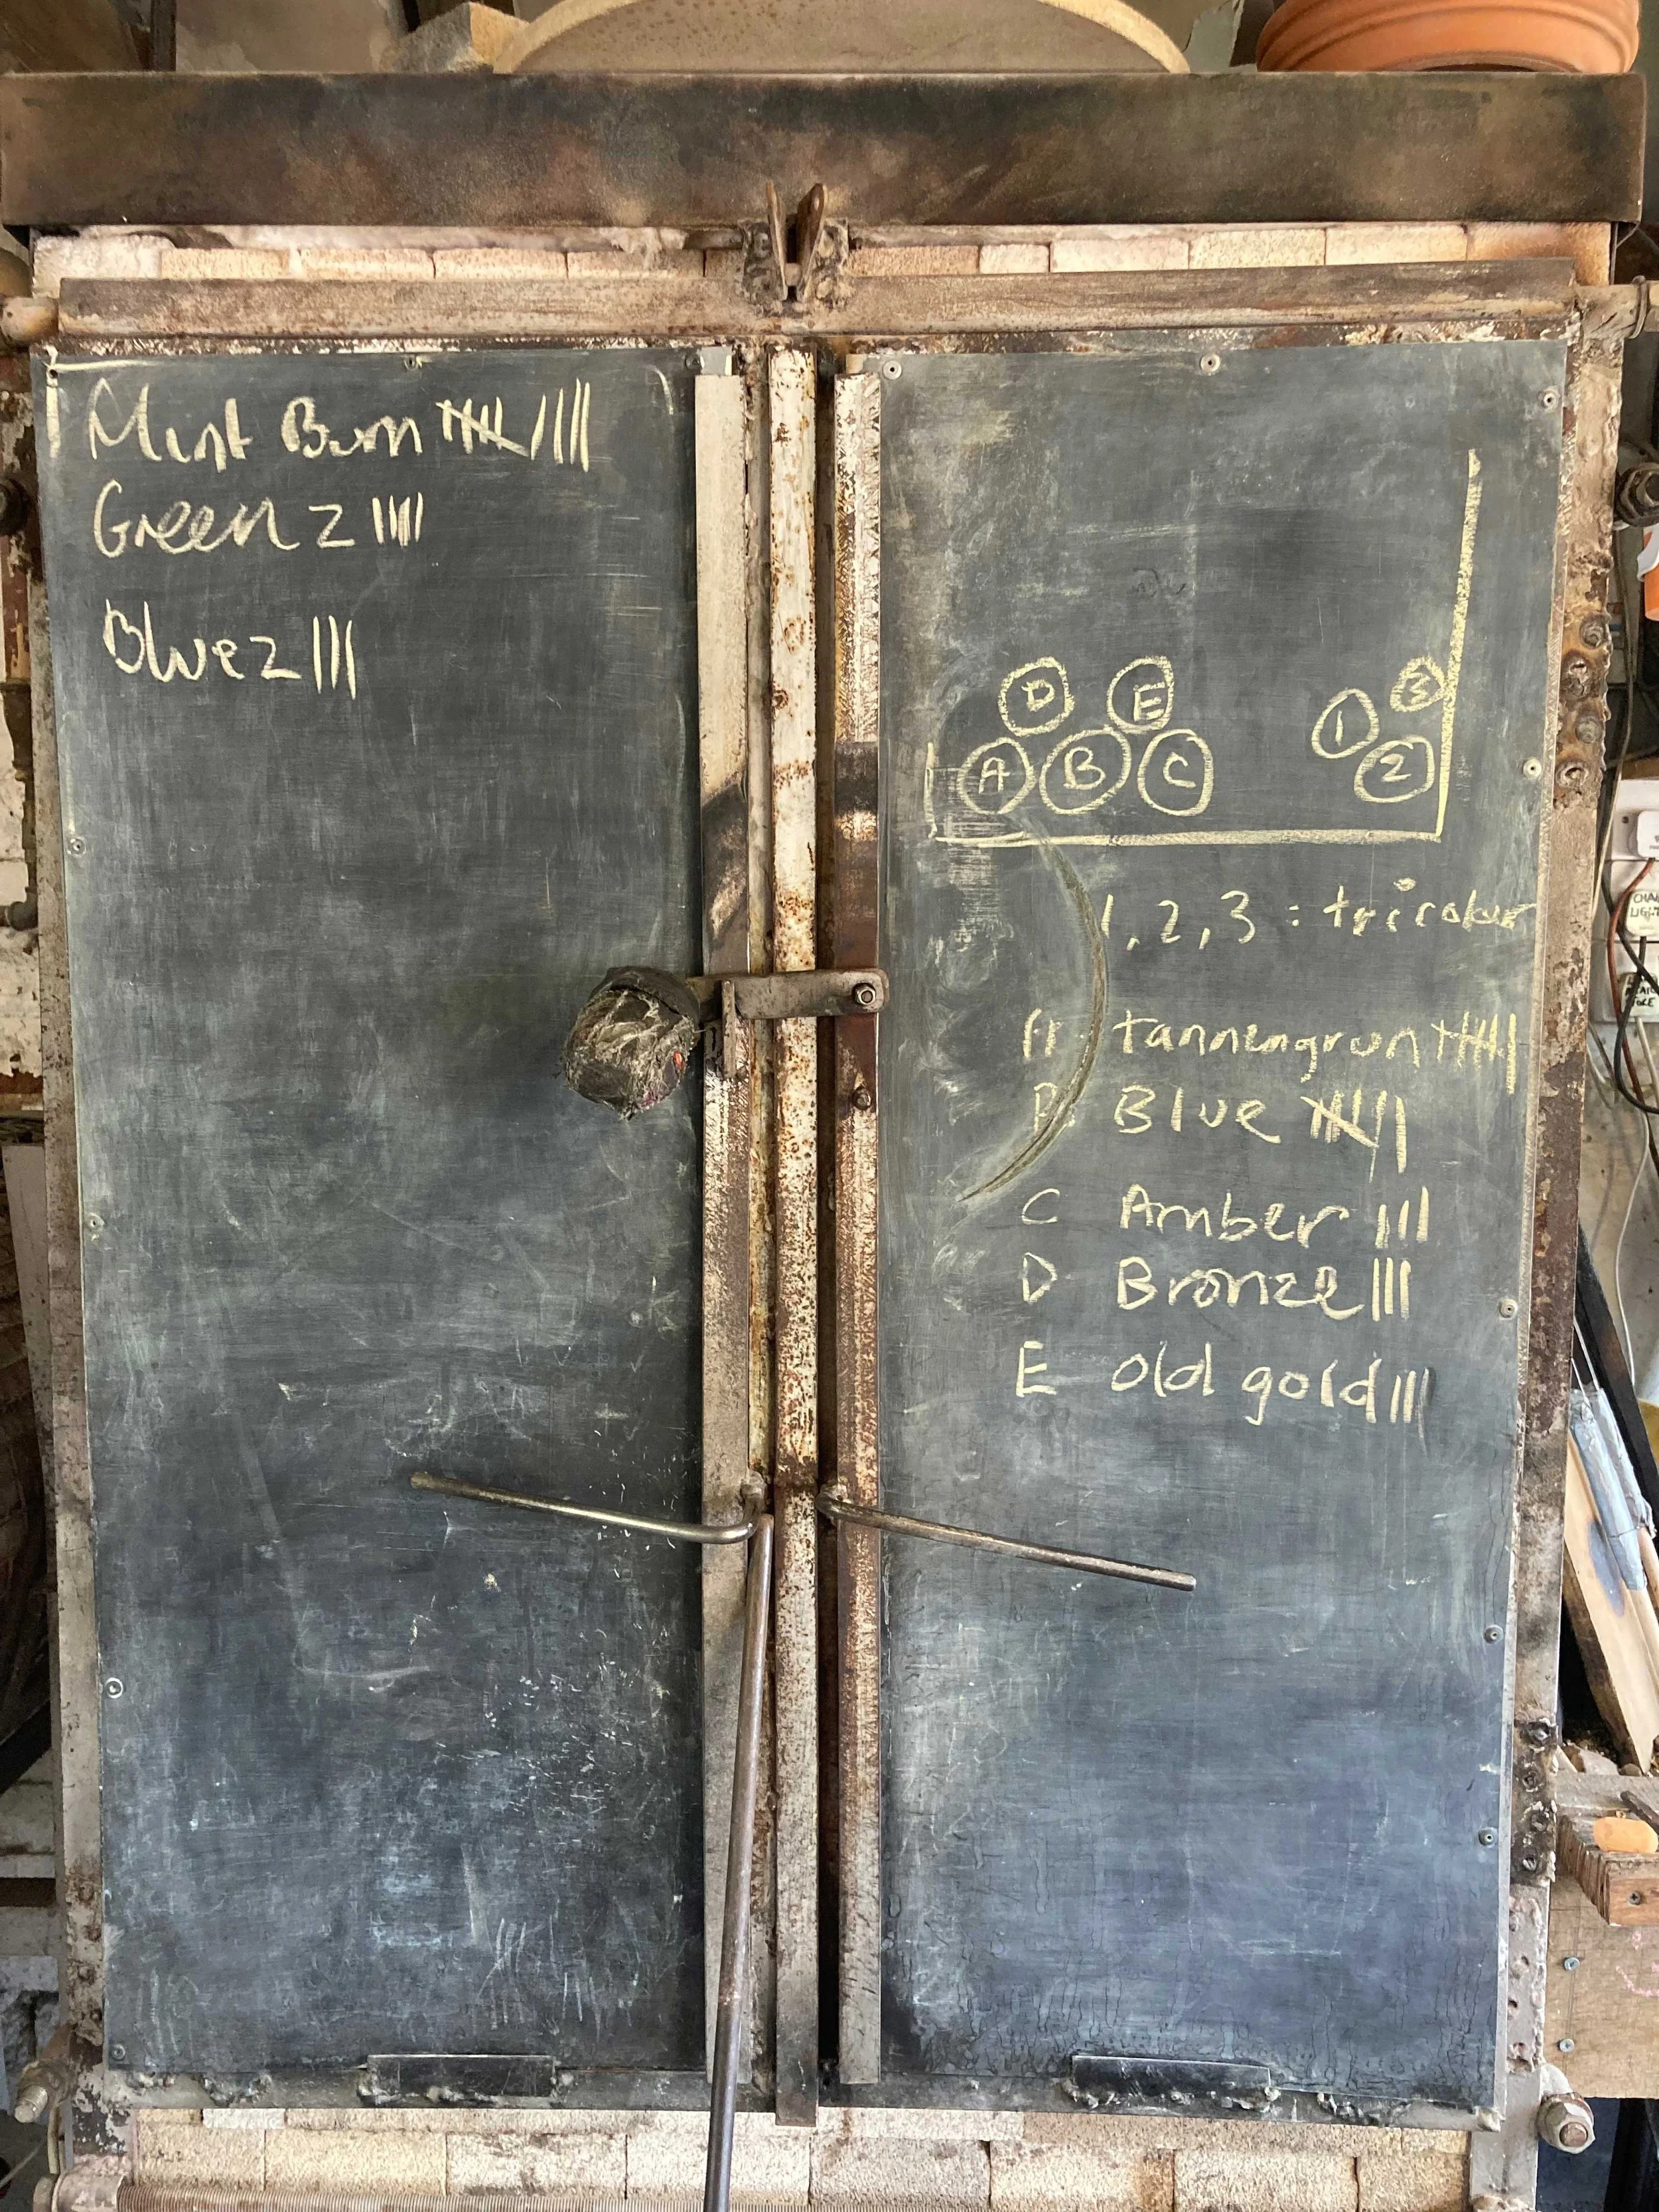 Mint Burn |||| ||||
Green 2 ||||
Blue 2 |||
D E 1 3
A B C 2
1, 2, 3 : tricolour
A tannengrun |||| |
B. Blue |||| |
C Amber |||
D Bronze |||
E old gold |||